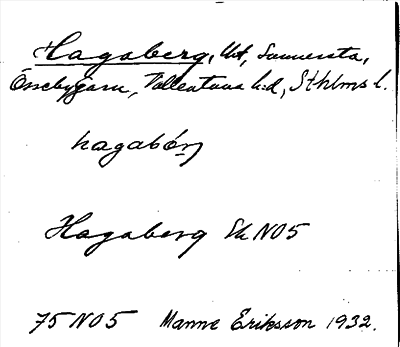 Hagaberg, Uht, Sunnersta,
Össebygarn, Vallentuna h:d, Sthlms l.
hagabárj
Hagaberg Ek N05
75 N05 Manne Eriksson 1932.